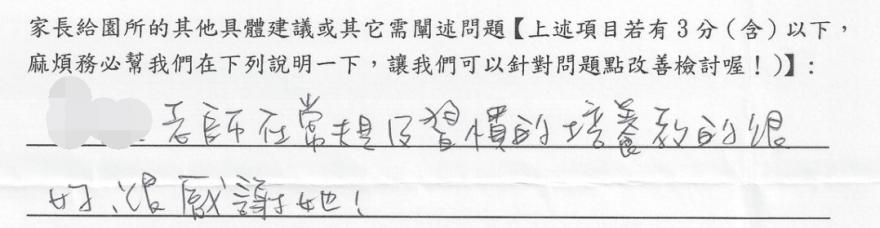 家長給園所的其他具體建議或其它需闡述問題【上述項目若有3分(含)以下,
麻煩務必幫我們在下列說明一下,讓我們可以針對問題點改善檢討喔!)】:
老師在常規及習慣的培養教的很
好,很感謝她!